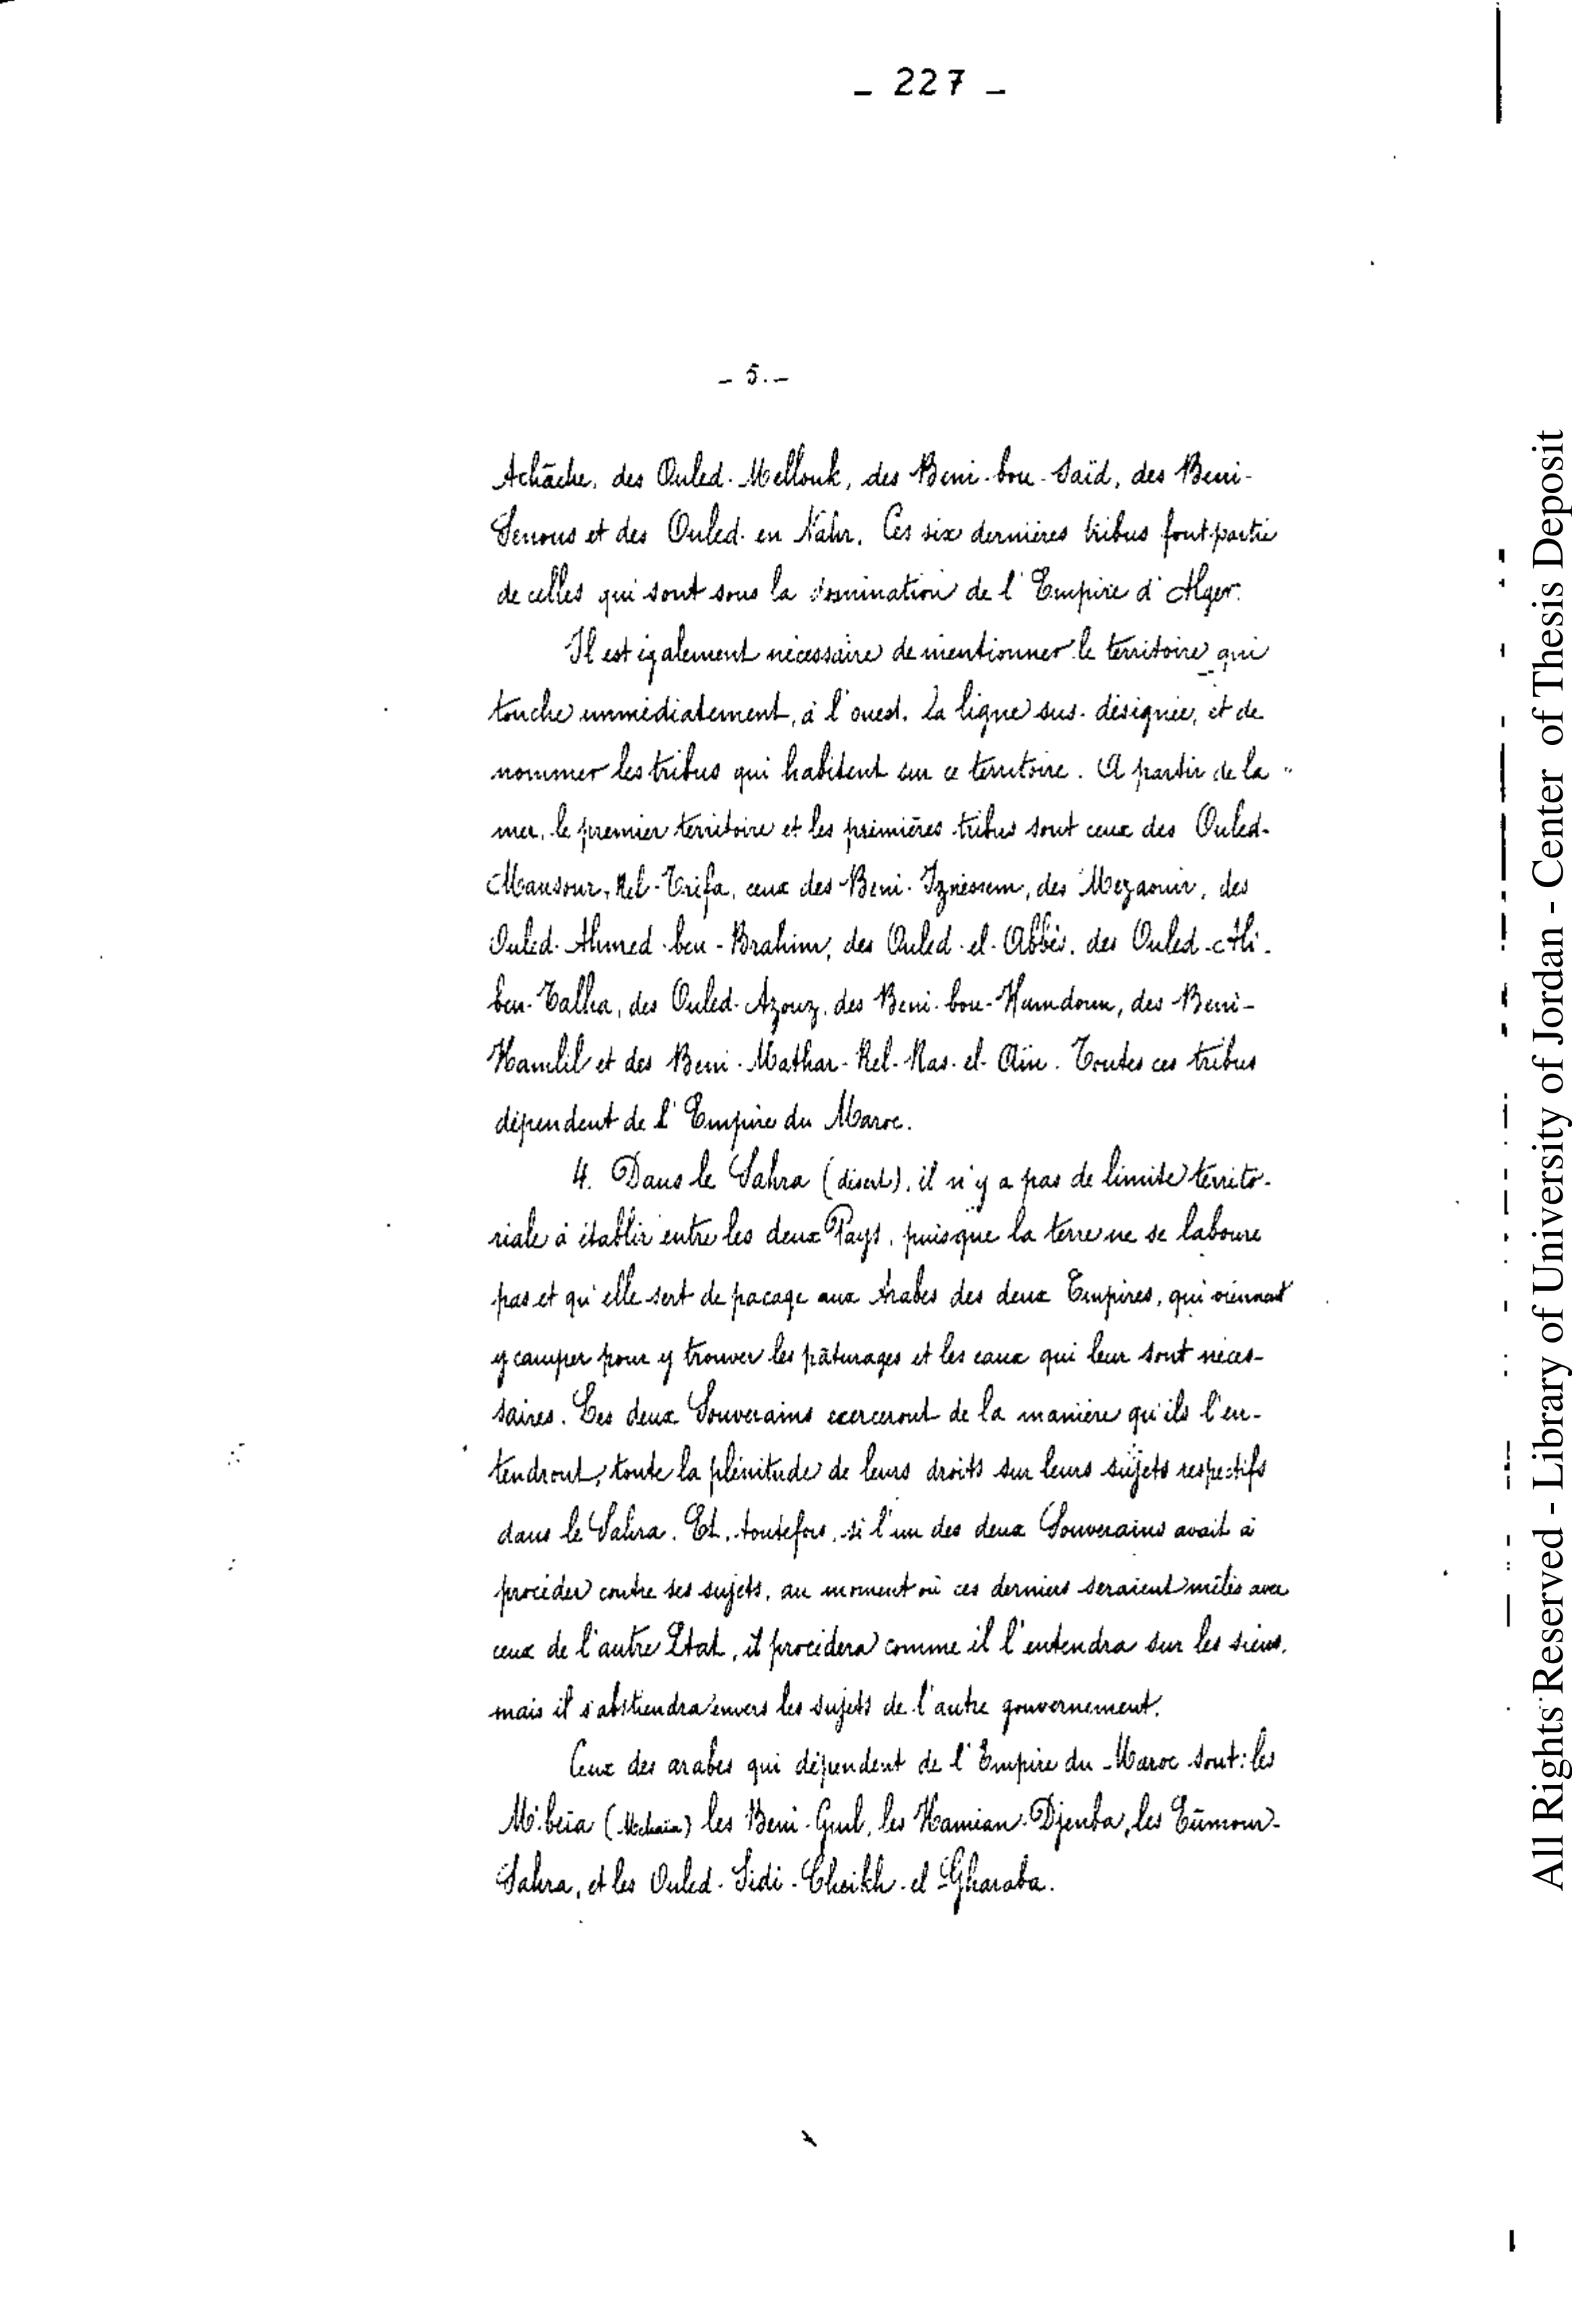 _ 227 _
_ 5._
Achâche, des Ouled-Mellouk, des Beni-bou-Saïd, des Beni-
Senous et des Ouled-en Nahr. Ces six dernières tribus font partie
de celles qui sont sous la domination de l'Empire d'Alger.
Il est également nécessaire de mentionner le territoire qui
touche immédiatement, à l'ouest, la ligne sus-désignée, et de
nommer les tribus qui habitent sur ce territoire. A partir de la
mer, le premier territoire et les premières tribus sont ceux des Ouled-
Mansour, Rel-Trifa, ceux des Beni-Iznéssem, des Mezaouir, des
Ouled-Ahmed-ben-Brahim, des Ouled-el-Abbès, des Ouled-Ali-
ben-Talha, des Ouled-Azouz, des Beni-bou-Hamdoun, des Beni-
Hamlil et des Beni-Mathar-Rel-Ras-el-Aïn. Toutes ces tribus
dépendent de l'Empire du Maroc.
4. Dans le Sahra (désert), il n'y a pas de limite territo-
riale à établir entre les deux Pays, puisque la terre ne se laboure
pas et qu'elle sert de pacage aux Arabes des deux Empires, qui viennent
y camper pour y trouver les pâturages et les eaux qui leur sont néces-
saires. Les deux Souverains exerceront de la manière qu'ils l'en-
tendront, toute la plénitude de leurs droits sur leurs sujets respectifs
dans le Sahra. Et, toutefois, si l'un des deux Souverains avait à
procéder contre ses sujets, au moment où ces derniers seraient mêlés avec
ceux de l'autre Etat, il procédera comme il l'entendra sur les siens,
mais il s'abstiendra envers les sujets de l'autre gouvernement.
Ceux des arabes qui dépendent de l'Empire du Maroc sont: les
M'béia les Beni-Guil, les Hamian-Djenba, les Eûmour-
Sahra, et les Ouled-Sidi-Cheikh-el-Gharaba.
All Rights Reserved - Library of University of Jordan - Center of Thesis Deposit